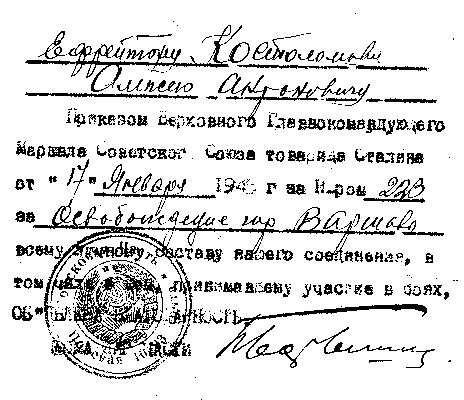 Ефрейтору Костоломову
Алексею Антоновичу
Приказом Верховного Главнокомандующего
Маршала Советског Союза товарища Сталина
от "17" Января 194 г за Н-ром 223
за Освобождение гор Варшава
всему личному составу нашего соединения, в
том числе и Вам, принимавшему участие в боях,
ОБ'ЯВЛЕНА БЛАГОДАРНОСТЬ
ЧАСТИ